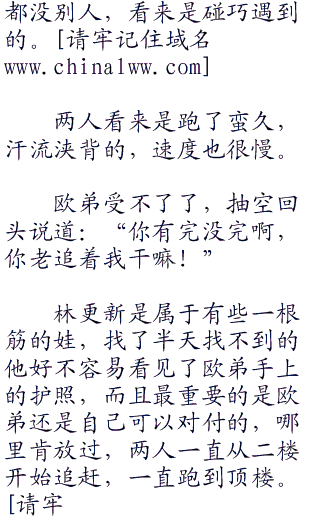 都没别人，看来是碰巧遇到
的。[请牢记住域名
www.china1ww.com]
两人看来是跑了蛮久，
汗流浃背的，速度也很慢。
欧弟受不了了，抽空回
头说道：“你有完没完啊，
你老追着我干嘛！”
林更新是属于有些一根
筋的娃，找了半天找不到的
他好不容易看见了欧弟手上
的护照，而且最重要的是欧
弟还是自己可以对付的，哪
里肯放过，两人一直从二楼
开始追赶，一直跑到顶楼。
[请牢